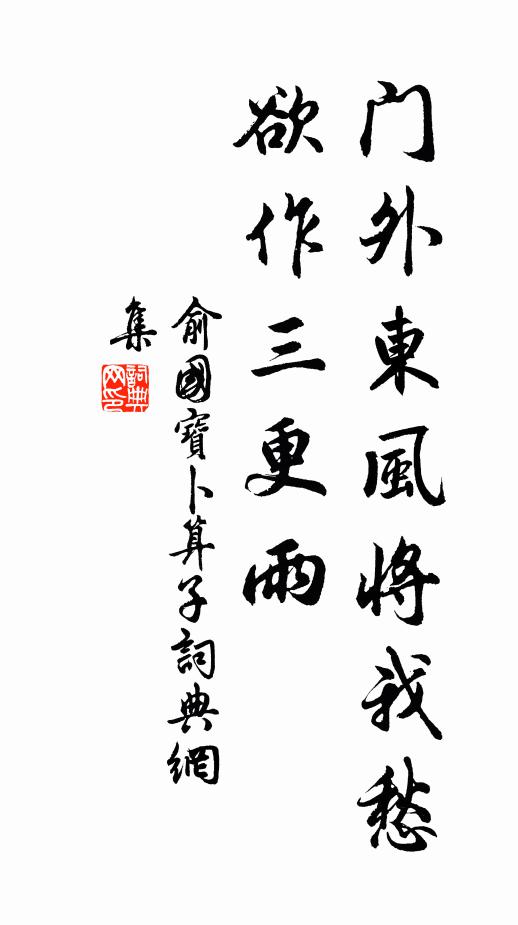 門外東風將我愁
欲作三更雨
俞國寶卜算子詞典網
集
詞典
网印